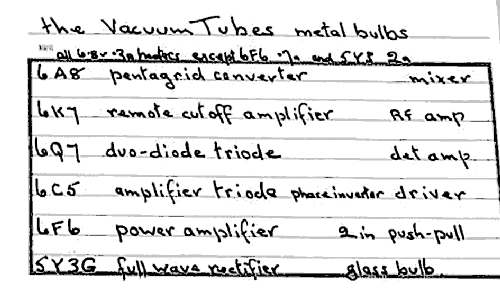 the Vacuum Tubes metal bulbs
all 6.3v .3a heaters except 6F6 .7a and 5Y3 2a
6A8 pentagrid converter mixer
6K7 remote cutoff amplifier RF amp
6Q7 duo-diode triode det amp
6C5 amplifier triode phase inverter driver
6F6 power amplifier 2 in push-pull
5Y3G full wave rectifier glass bulb